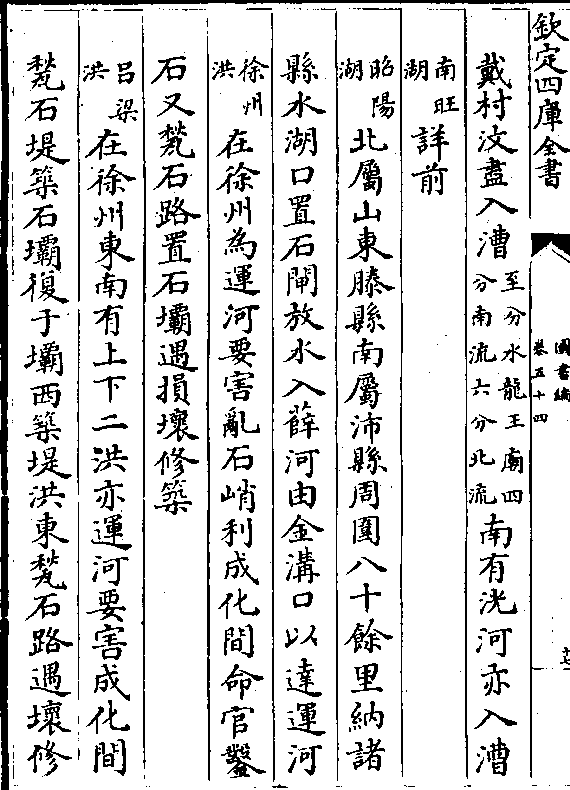 欽定四庫全書
圖書編
卷五十四
戴村汶盡入漕至分水龍王廟四分南流六分北流南有洸河亦入漕
南旺湖詳前
昭陽湖北屬山東滕縣南屬沛縣周圍八十餘里納諸
縣水湖口置石閘放水入薛河由金溝口以達運河
徐州洪在徐州為運河要害亂石峭利成化間命官鑿
石又甃石路置石壩遇損壞修築
吕梁洪在徐州東南有上下二洪亦運河要害成化間
甃石堤築石壩復于壩西築堤洪東甃石路遇壞修